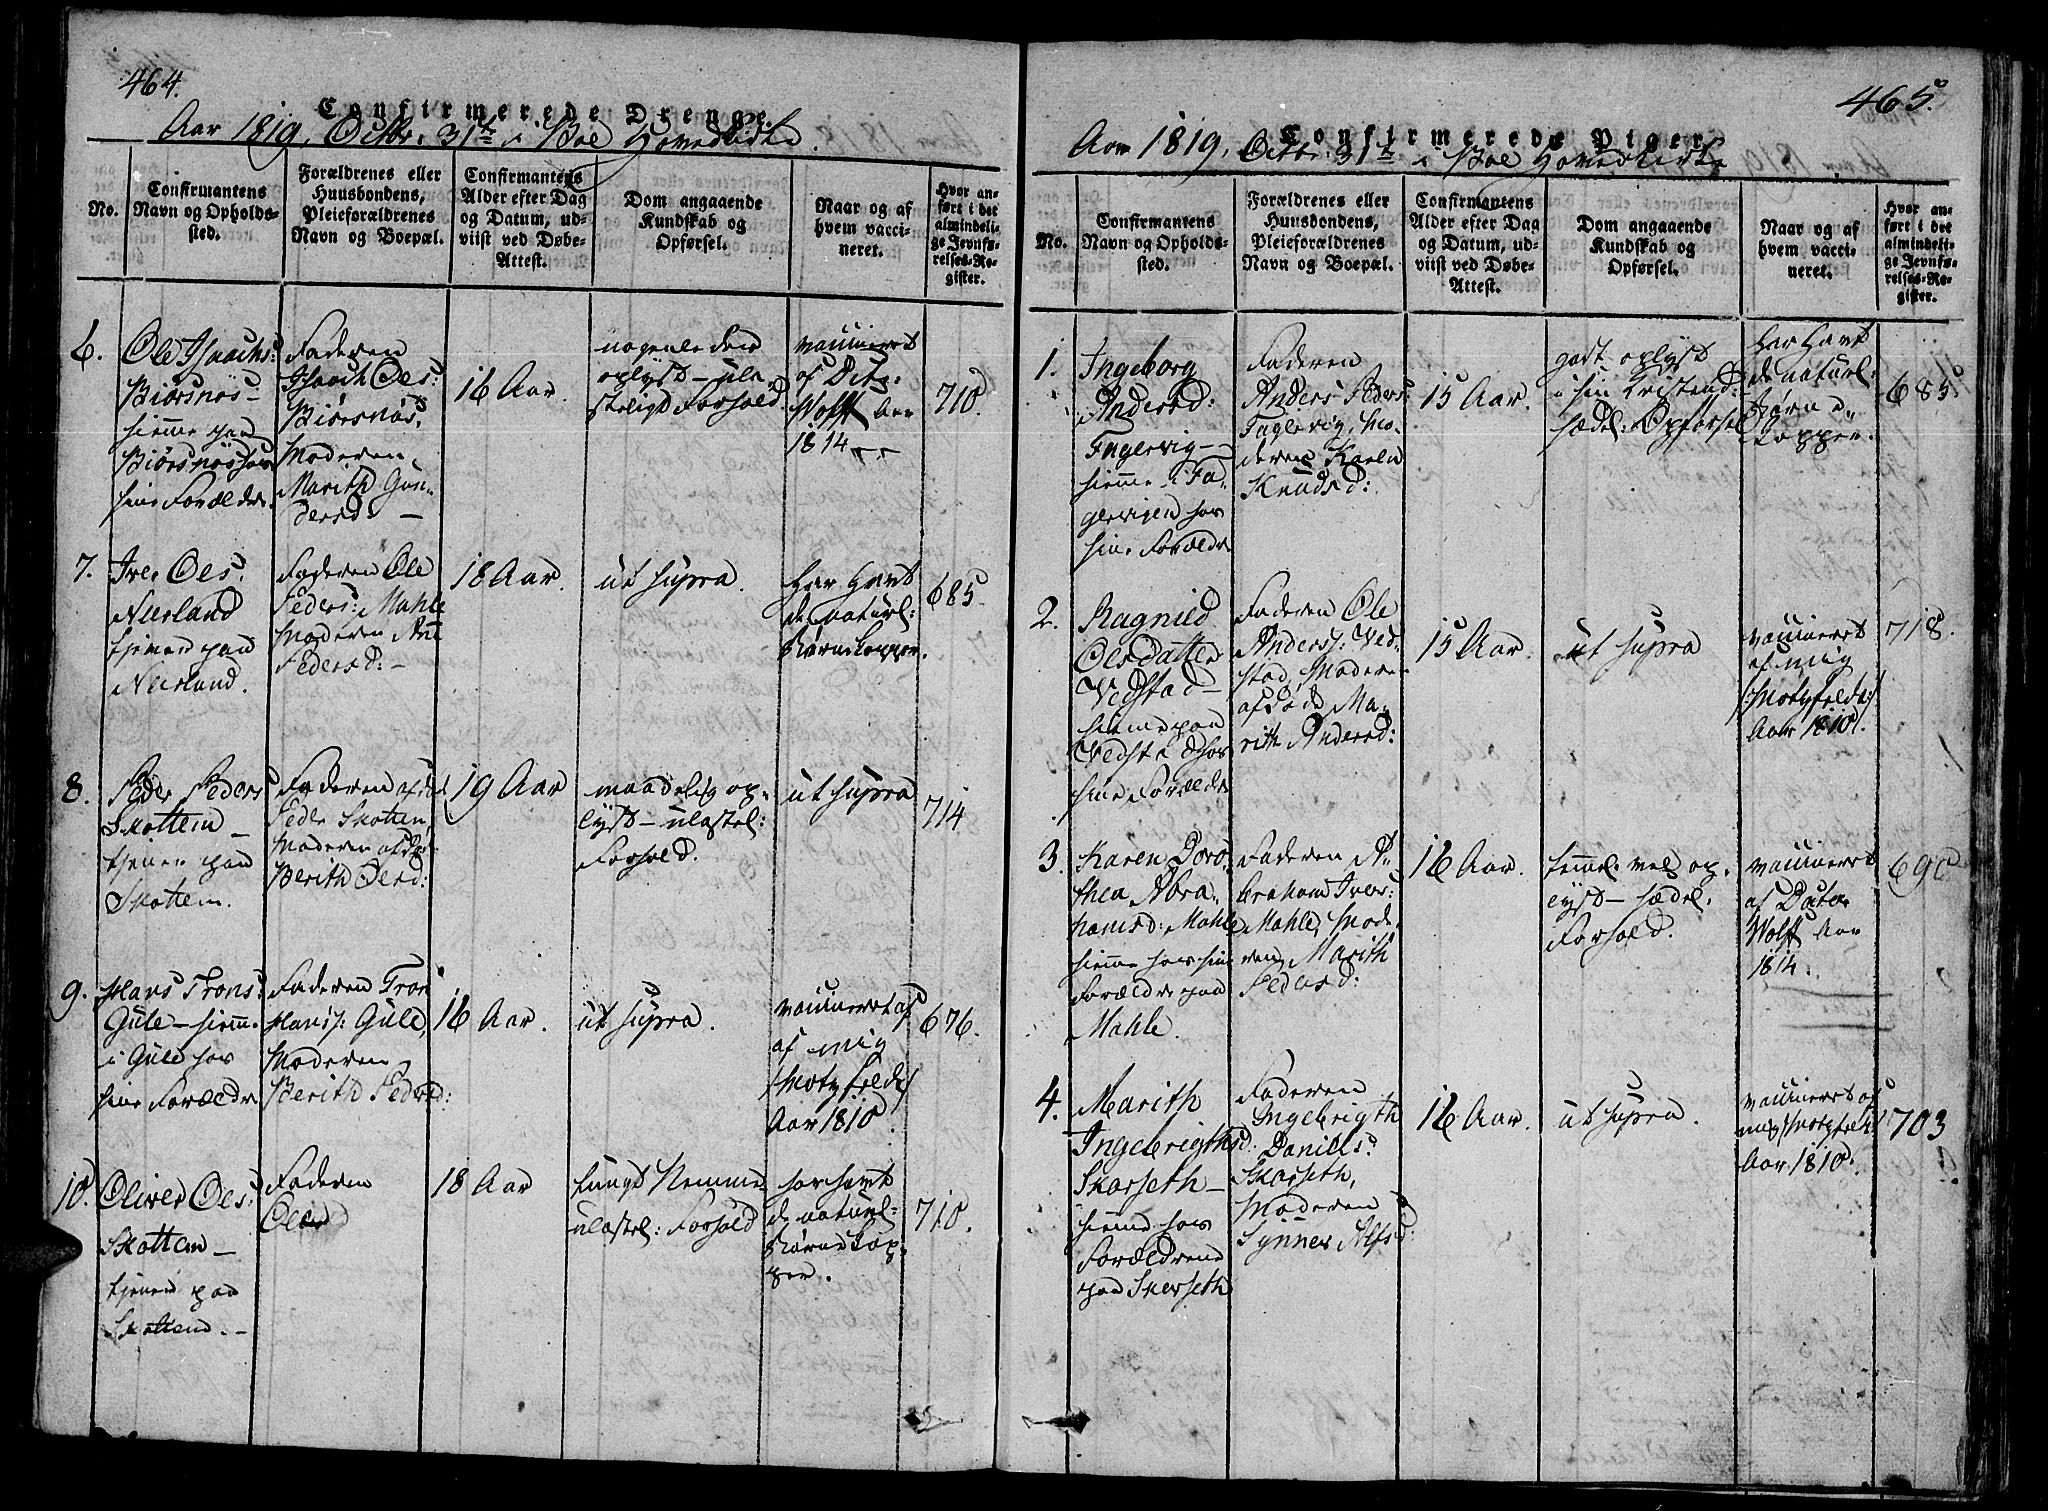 464.
Confirmerede Drenge
Aar 1819, Octbr. 31te i Boe Hovedkirke.
No.
Confirmantens
Navn og Opholds-
sted.
Forældrenes eller
Huusbondens,
Pleieforældrenes
Navn og Boepæl.
Confirmantens
Alder efter Dag
og Datum, ud-
viist ved Døbe-
Attest.
Dom angaaende
Kundskab og
Opførsel.
Naar og af
hvem vacci-
neret.
Hvor an-
ført i det
almindeli-
ge Jevnfø-
relses-Re-
gister.
6.
Ole Isachs:
Biørsnøs-
hiemme paa
Biørsnøs hos
sine Forældre.
Faderen
Isach Oles:
Biørsnøs,
Moderen
Marith Gun-
dersd. -
16 Aar.
nogenledes
oplyst - ula
steligt Forhold.
vaccineret
af
Wolff Aar
1814
710.
7.
Iver Oles.
Nerland
tjener paa
Nerland.
Faderen Ole
Peders: Mahle
Moderen Ane
Pedersd: -
18 Aar.
ut supra.
har havt
de naturl:
Børnekopper.
685.
8.
Peder Peders
Skottem -
tjener paa
Skottem.
Faderen afdød
Peder Skottem,
Moderen afdø:
Berith Olesd:
19 Aar
maadelig op-
lyst - ulastel:
Forhold.
ut supra
714
9.
Hans Trons:
Gule - hiem.
i Gule hos
sine Forældre
Faderen Tron
Hans: Gule,
Moderen
Berith Pedersd:
16 Aar.
ut supra.
vaccineret af
af mig
/Motzfeldt/
Aar 1810.
676.
10.
Oliver Oles:
Skottem -
tjener paa
Skottem. -
Faderen
Ole
18 Aar
tungt Nemme-
ulastel: Forhold
har havt
de naturl-
Børnekop-
per.
710.
465.
Confirmerede Piger
Aar 1819, Octbr. 31te i Boe Hovedkirke
No.
Confirmantens
Navn og Opholds-
sted.
Forældrenes eller
Huusbondens,
Pleieforældrenes
Navn og Boepæl.
Confirmantens
Alder efter Dag
og Datum, ud-
viist ved Døbe-
Attest.
Dom angaaende
Kundskab og
Opførsel.
Naar og af
hvem vacci-
neret.
Hvor an-
ført i det
almindeli-
ge Jevnfø-
relses-Re-
gister.
1.
Ingeborg
Andersd:
Fagervig -
hiemme i Fa-
gervigen hos
sine Forældre
Faderen
Anders Peders
Fagervig, Mo-
deren Karen
Knudsd:
15 Aar.
godt oplyst
i sin Kristend:
sædel: Opførsel
har havt
de naturl:
Børne
kopper.
685.
2.
Ragnild
Olesdatter
Vedstad -
hiemme paa
Vedstad hos
sine Forældre
Faderen Ole
Anders: Ved-
stad, Moderen
afdøde Ma-
rith Andersd:
15 Aar.
ut supra
vaccineret
af mig
/Motzfeldt/
Aar 1810.
718.
3.
Karen Doro-
thea Abra-
hamsd: Mahle
hiemme hos sine
Forældre paa
Mahle.
Faderen A-
braham Ivers:
Mahle, Mode-
ren Marith
Pedersd:
16 Aar.
temmel. vel op-
lyst - sædel.
Forhold.
vaccineret
af Doctor
Wolff Aar
1814.
690
4.
Marith
Ingebrigthsd:
Skarseth -
hiemme hos
Forældrene
paa Skarseth
Faderen
Ingebrigth
Daniels:
Skarseth,
Moderen
Synnev Alfsd:
16 Aar.
ut supra.
vaccineret af
mig /Motzfeldt/
Aar 1810.
703